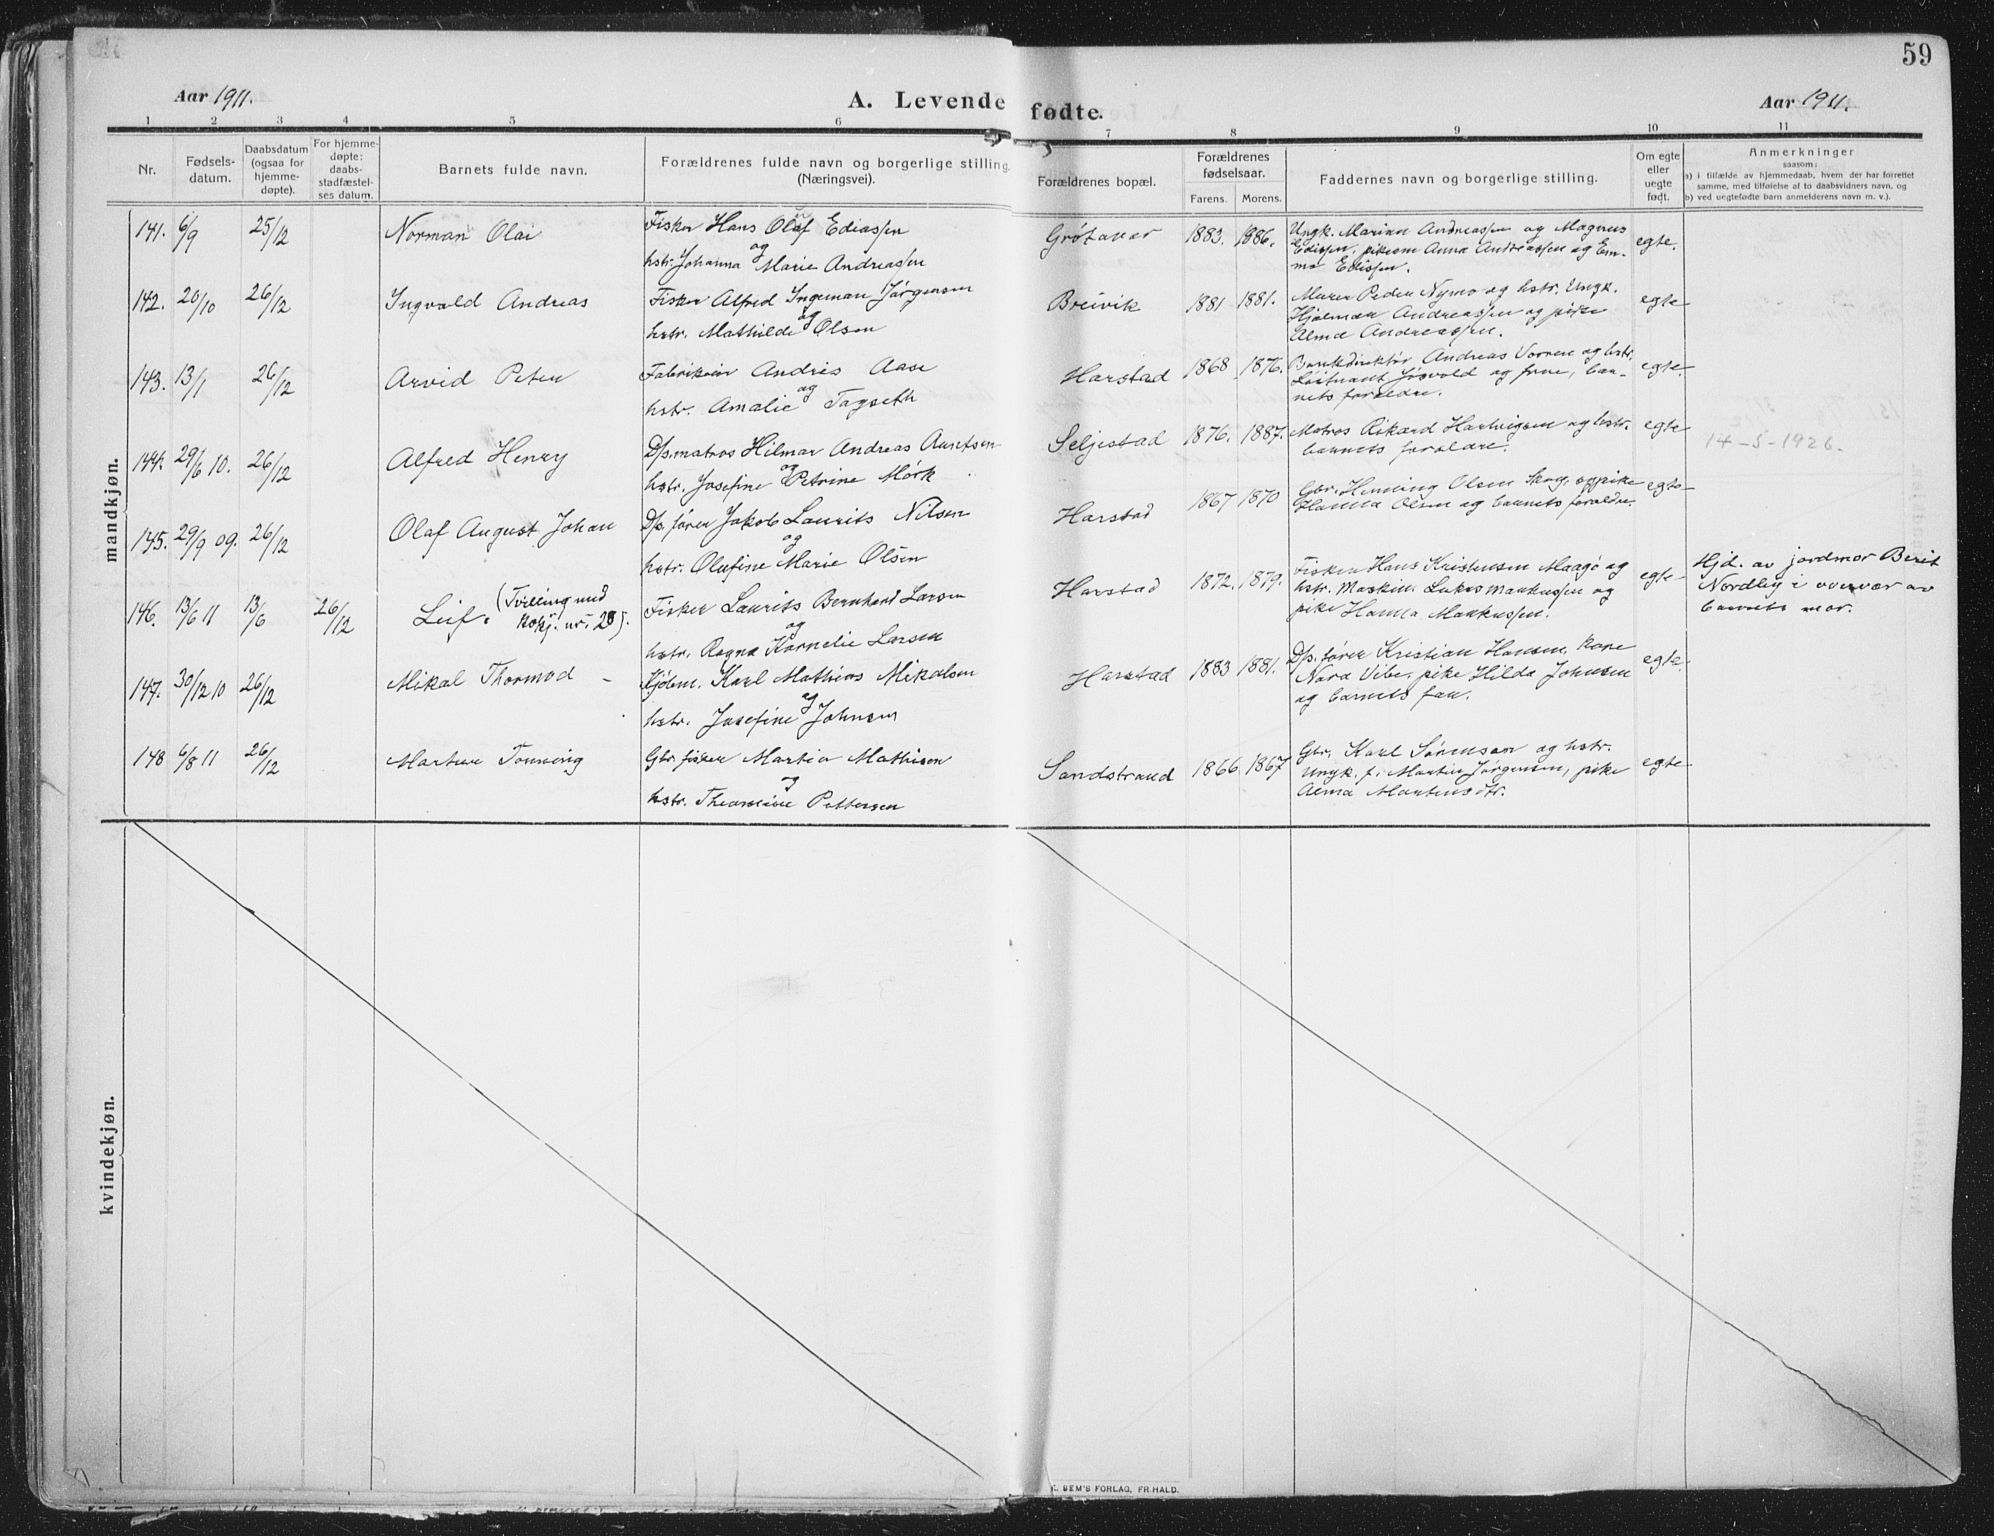 59
Aar 1911.
A. Levende fødte.
Aar 1911.
1 2 3 4 5 6 7 8 9 10 11
Nr.
Fødsels-
datum.
Daabsdatum
(ogsaa for
hjemme-
døpte).
For hjemme-
døpte:
daabs-
stadfæstel-
ses datum.
Barnets fulde navn.
Forældrenes fulde navn og borgerlige stilling.
(Næringsvei).
Forældrenes bopæl.
Forældrenes
fødselsaar.
Farens. Morens.
Faddernes navn og borgerlige stilling.
Om egte
eller
uegte
født.
Anmerkninger
saasom:
a) i tilfælde av hjemmedaab, hvem der har forrettet
samme, med tilføielse af to daabsvidners navn, og
b) ved uegtefødte barn anmelderens navn m. v.).
mandkjøn.
141. 6/9 25/12 Norman Olai
Fisker Hans Olaf Ediassen
og
hstr. Johanna Marie Andreassen
Grøtavær 1883. 1886.
Ungk. Marian Andreassen og Magnus
Edissen, pikerne Anna Andreassen og Em-
ma Edissen.
egte.
142. 20/10 26/12 Ingvald Andreas
Fisker Alfred Ingeman Jørgensen
og
hstr. Mathilde Olsen
Breivik 1881 1881.
Murer Peder Nymo og hstr. Ungk.
Hjalmar Andreassen og pike
Alma Andreassen.
egte
143. 13/1 26/12 Arvid Peter
Fabrikeier Andreis Aase
og
hstr. Amalie Tagseth
Harstad 1868 1876.
Bankdirektør Andreas Vorren og hstr.
Løitnant Jøsvold og frue, bar-
nets forældre.
egte.
144. 29/6 10. 26/12 Alfred Henry
D/s. matros Hilmar Andreas Arntsen
og
hstr. Josefine Petrine Mörk
Seljestad 1876. 1887.
Matros Rikard Hartvigsen og hstr.
barnets forældre.
egte
14-5-1926.
145. 29/9 09. 26/12 Olaf August Johan
D/s. fører Jakob Laurits Nilsen
og
hstr. Olufine Marie Olsen
Harstad 1867 1870
Gbr. Henning Olsen Skog, og pike
Hanna Olsen og barnets forældre.
egte
146. 13/6 11 13/6 26/12 Leif. (Tvilling med
kvkj. nr. 28).
Fisker Laurits Bernhard Larsen
og
hstr. Ragna Kornelie Larsen
Harstad 1872. 1879.
Fisker Hans Kristensen Maagø og
hstr. Maskin. Lukas Markussen og
pike Hanna Markussen.
egte
Hjd. av jordmor Berit
Nordlig i overvær av
barnets mor.
147. 30/12 10 26/12 Mikal Thormod
Kjøbm. Karl Mathias Mikalsen
og
hstr. Josefine Johnsen
Harstad 1883 1881.
D/s. fører Kristian Hansen, kone
Nora Vibe, pike Hilda Johnsen
og barnets far.
egte
148 6/8 11 26/12 Martin Tonning
Gbr. fisker Martin Mathisen
og
hstr. Theonine Pettersen
Sandstrand 1866. 1867
Gbr. Karl Sørensen og hstr.
ungk. f. Martin Jørgensen, pike
Alma Martinsdtr.
egte
kvindekjøn.
SEM'S FORLAG, FR.HALD.